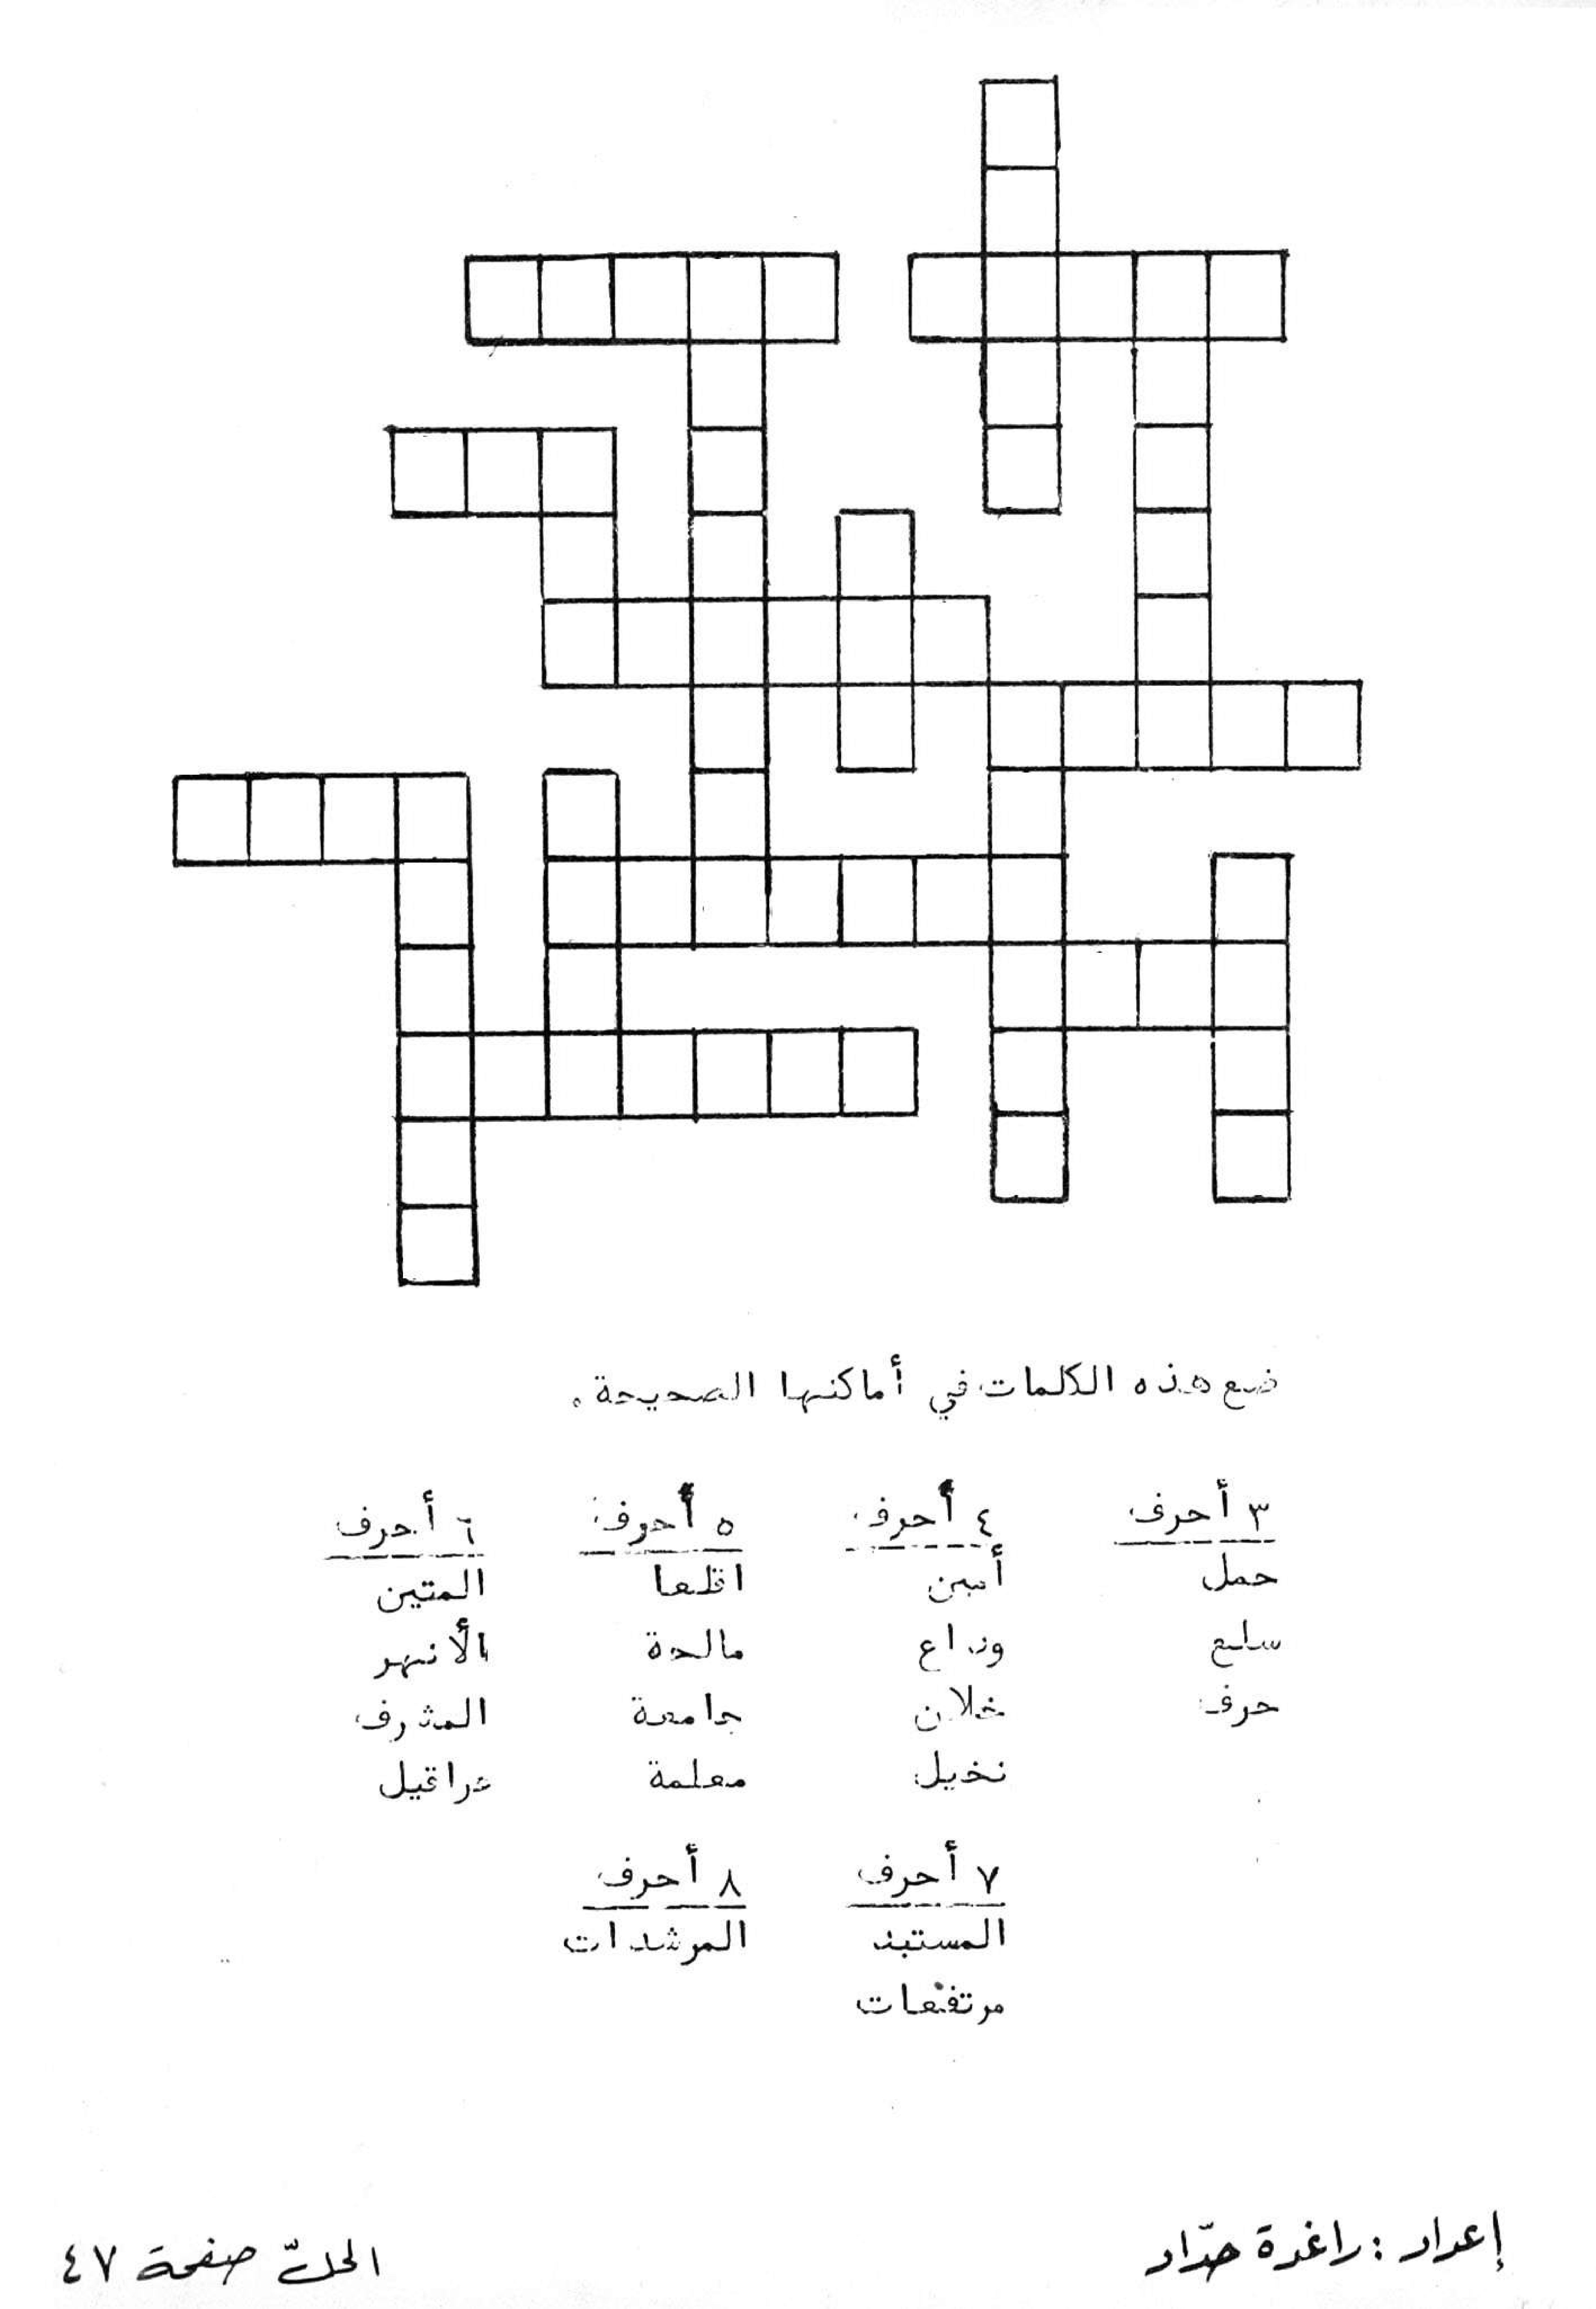 ضع هذه الكلمات في أماكنها الصحيحة.
٣ أحرف ٤ أحرف ٥ أحرف ٦ أحرف
حمل أمين اقلعا المتين
سلع وداع مالحة الأنهر
حرف خلان جامعة المشرف
نخيل معلمة عراقيل
٧ أحرف ٨ أحرف
المستبد المرشدات
مرتفعات
إعداد: راغدة حدّاد الحلّ صفحة ٤٧